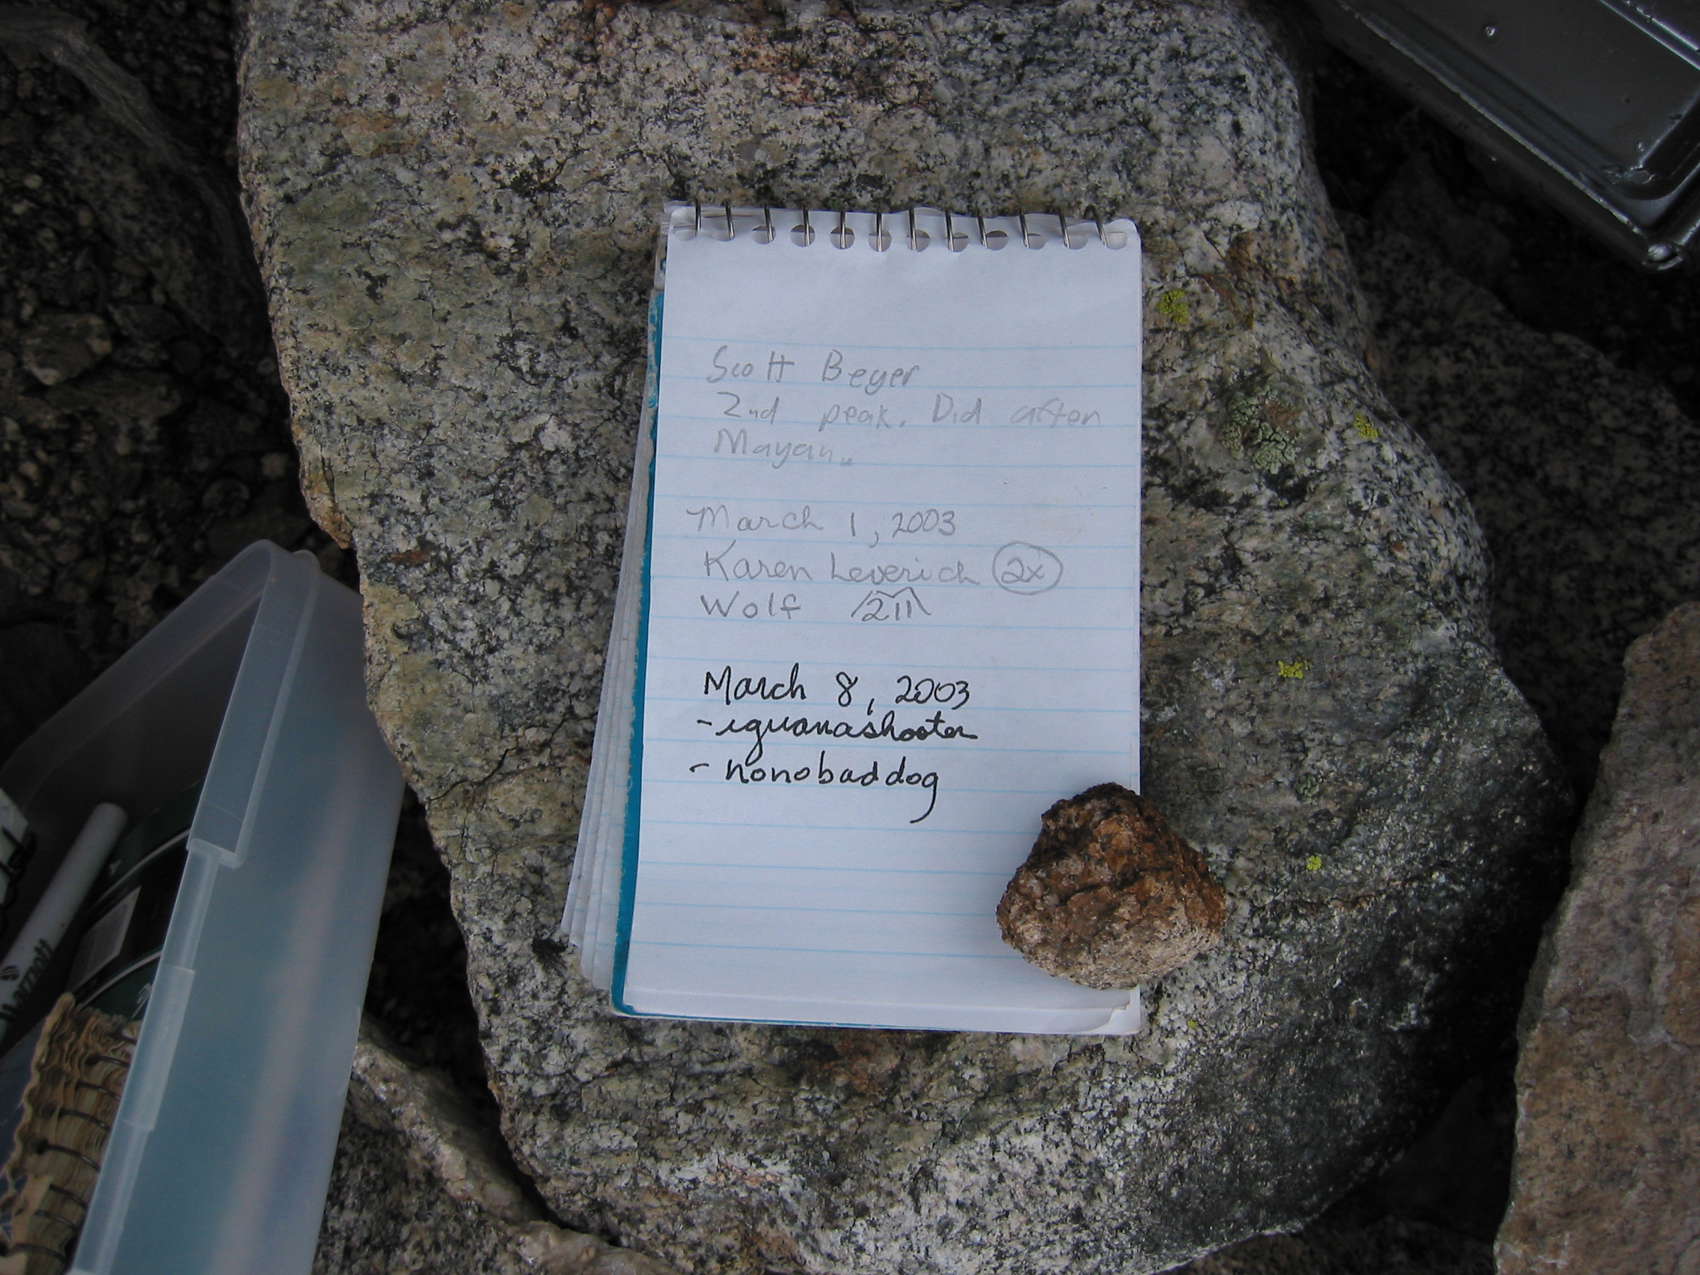 Scott Beyer
2nd peak. Did after
Mayan.
March 1, 2003
Karen Leverich 2x
Wolf 211
March 8, 2003
- iguanashooter
- nonobaddog